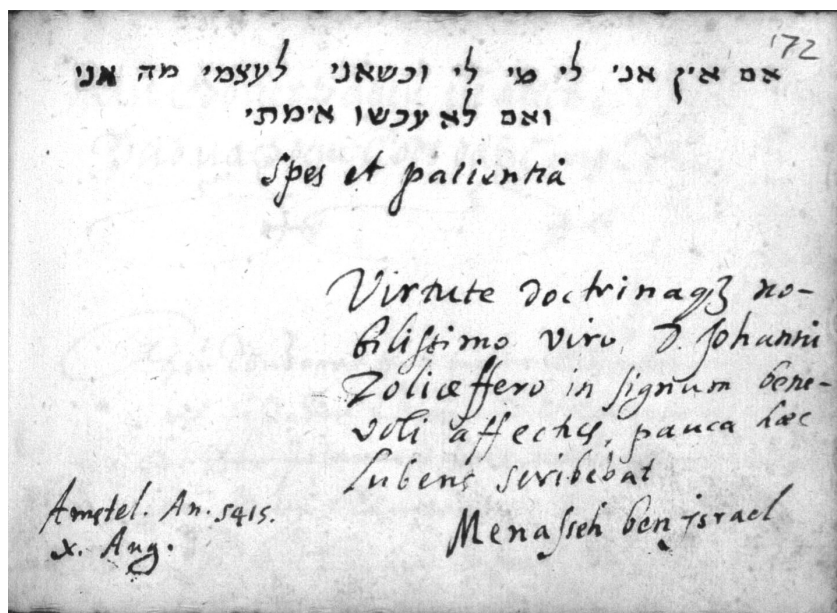 172
אם אין אני לי מי לי וכשאני לעצמי מה אני
ואם לא עכשו אימתי
Spes et patientia
Virtute doctrinaqꝫ no-
bilissimo viro, D. Johanni
Zoliæffero in signum bene-
voli affectus, pauca hæc
lubens scribebat
Menasseh ben israel
Amstel. An. 5415.
x. Aug.